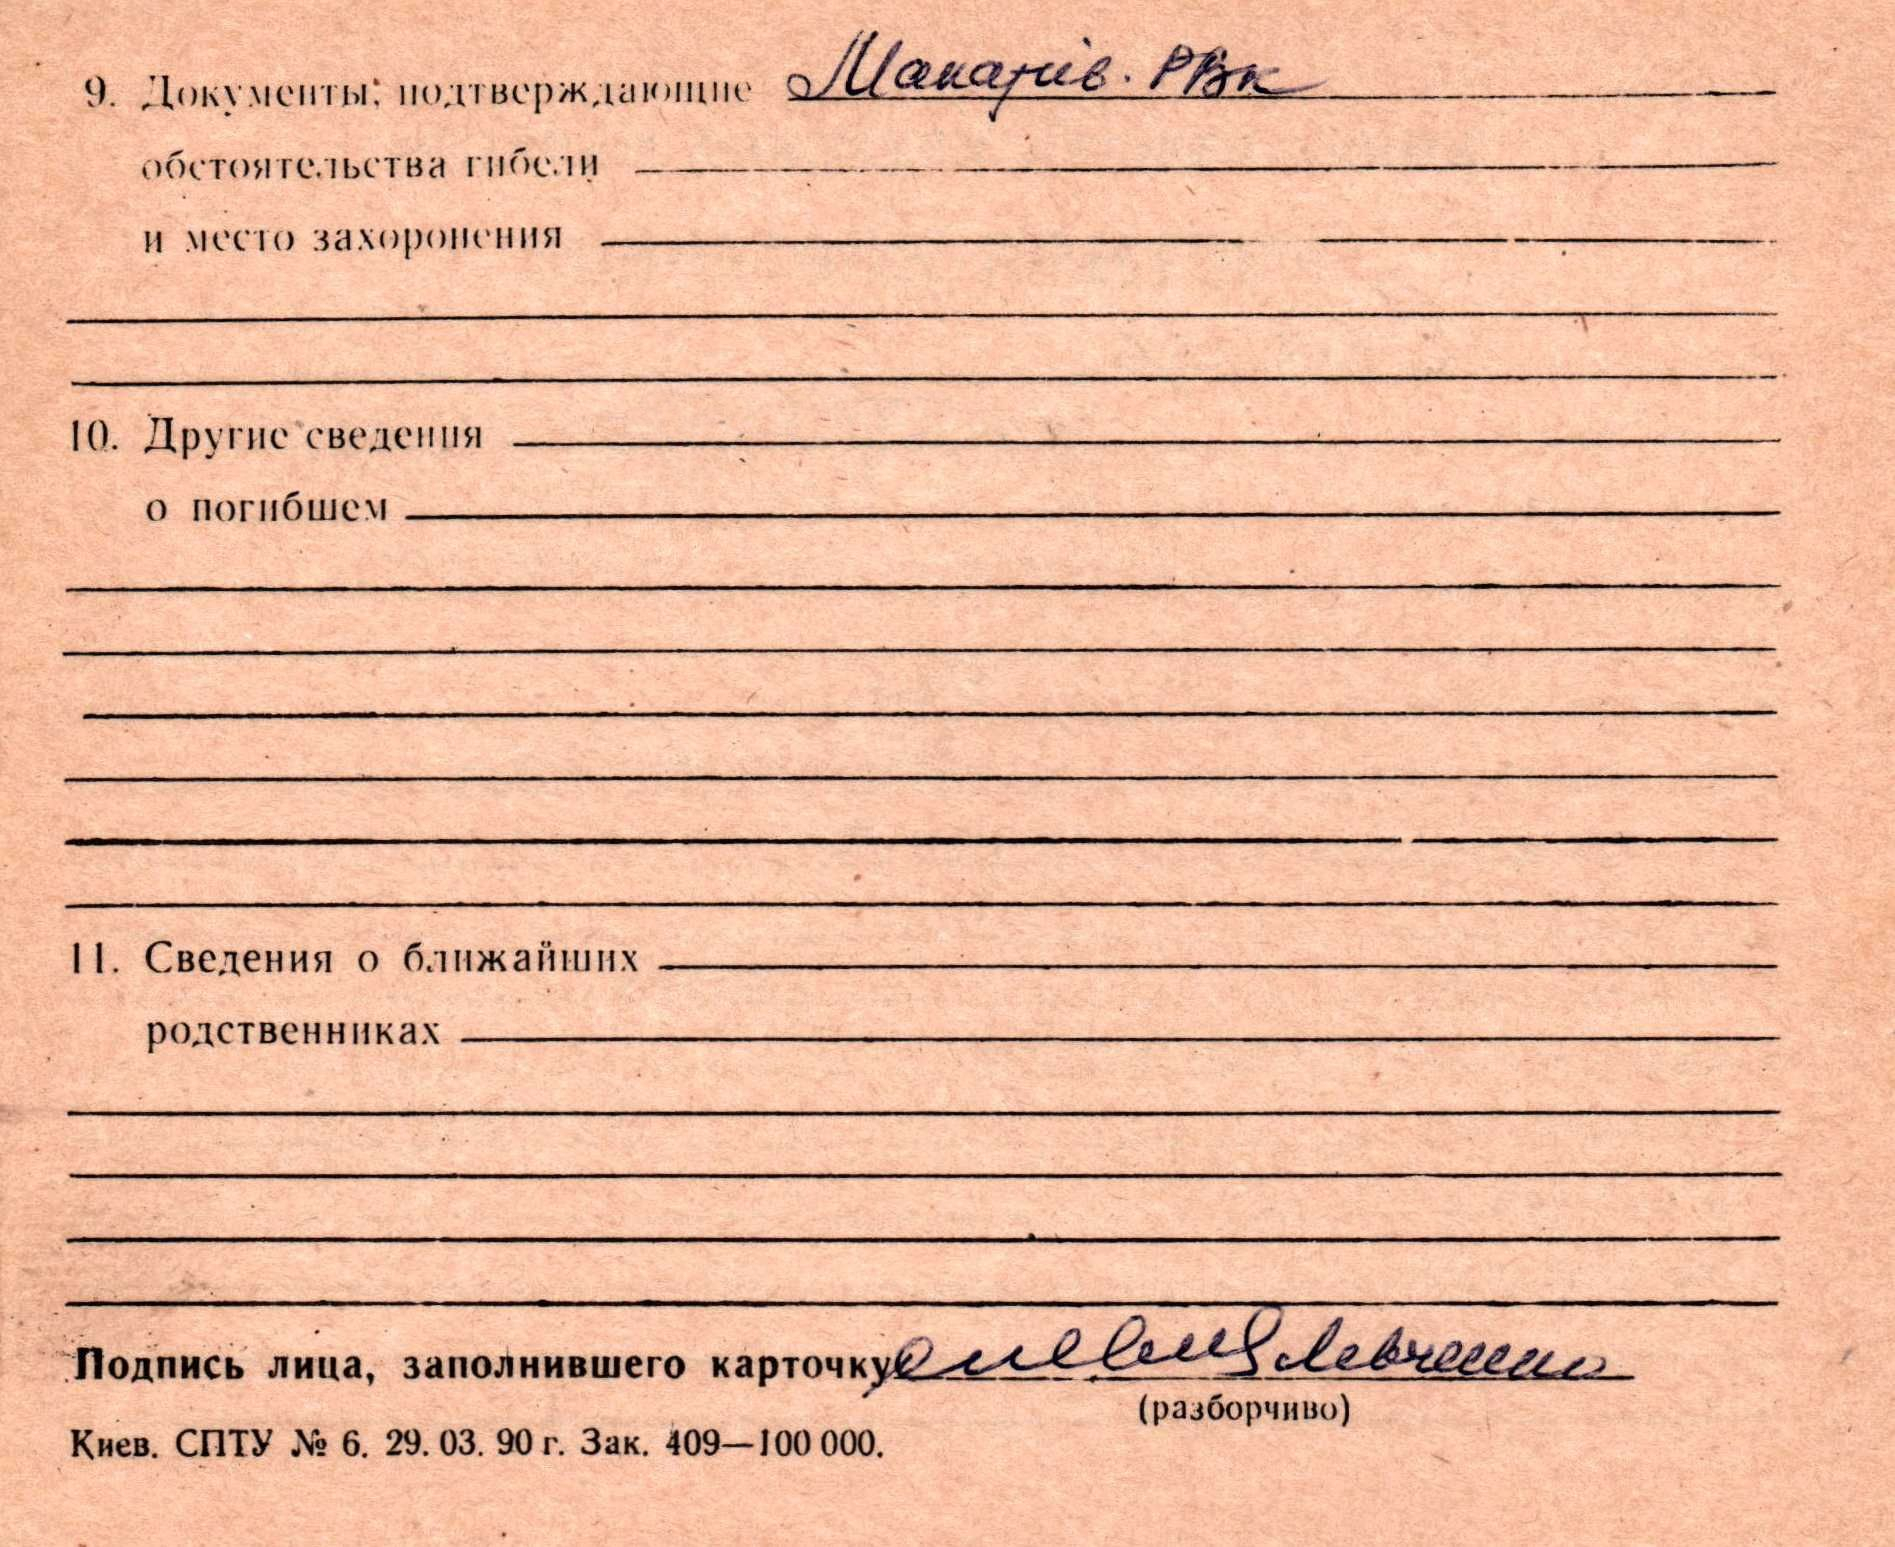 9. Документы, подтверждающие Макарів. РВК
обстоятельства гибели
и место захоронения
10. Другие сведения
о погибшем
11. Сведения о ближайших
родственниках
Подпись лица, заполнившего карточку Левченко
(разборчиво)
Киев. СПТУ № 6. 29. 03. 90 г. Зак. 409—100 000.